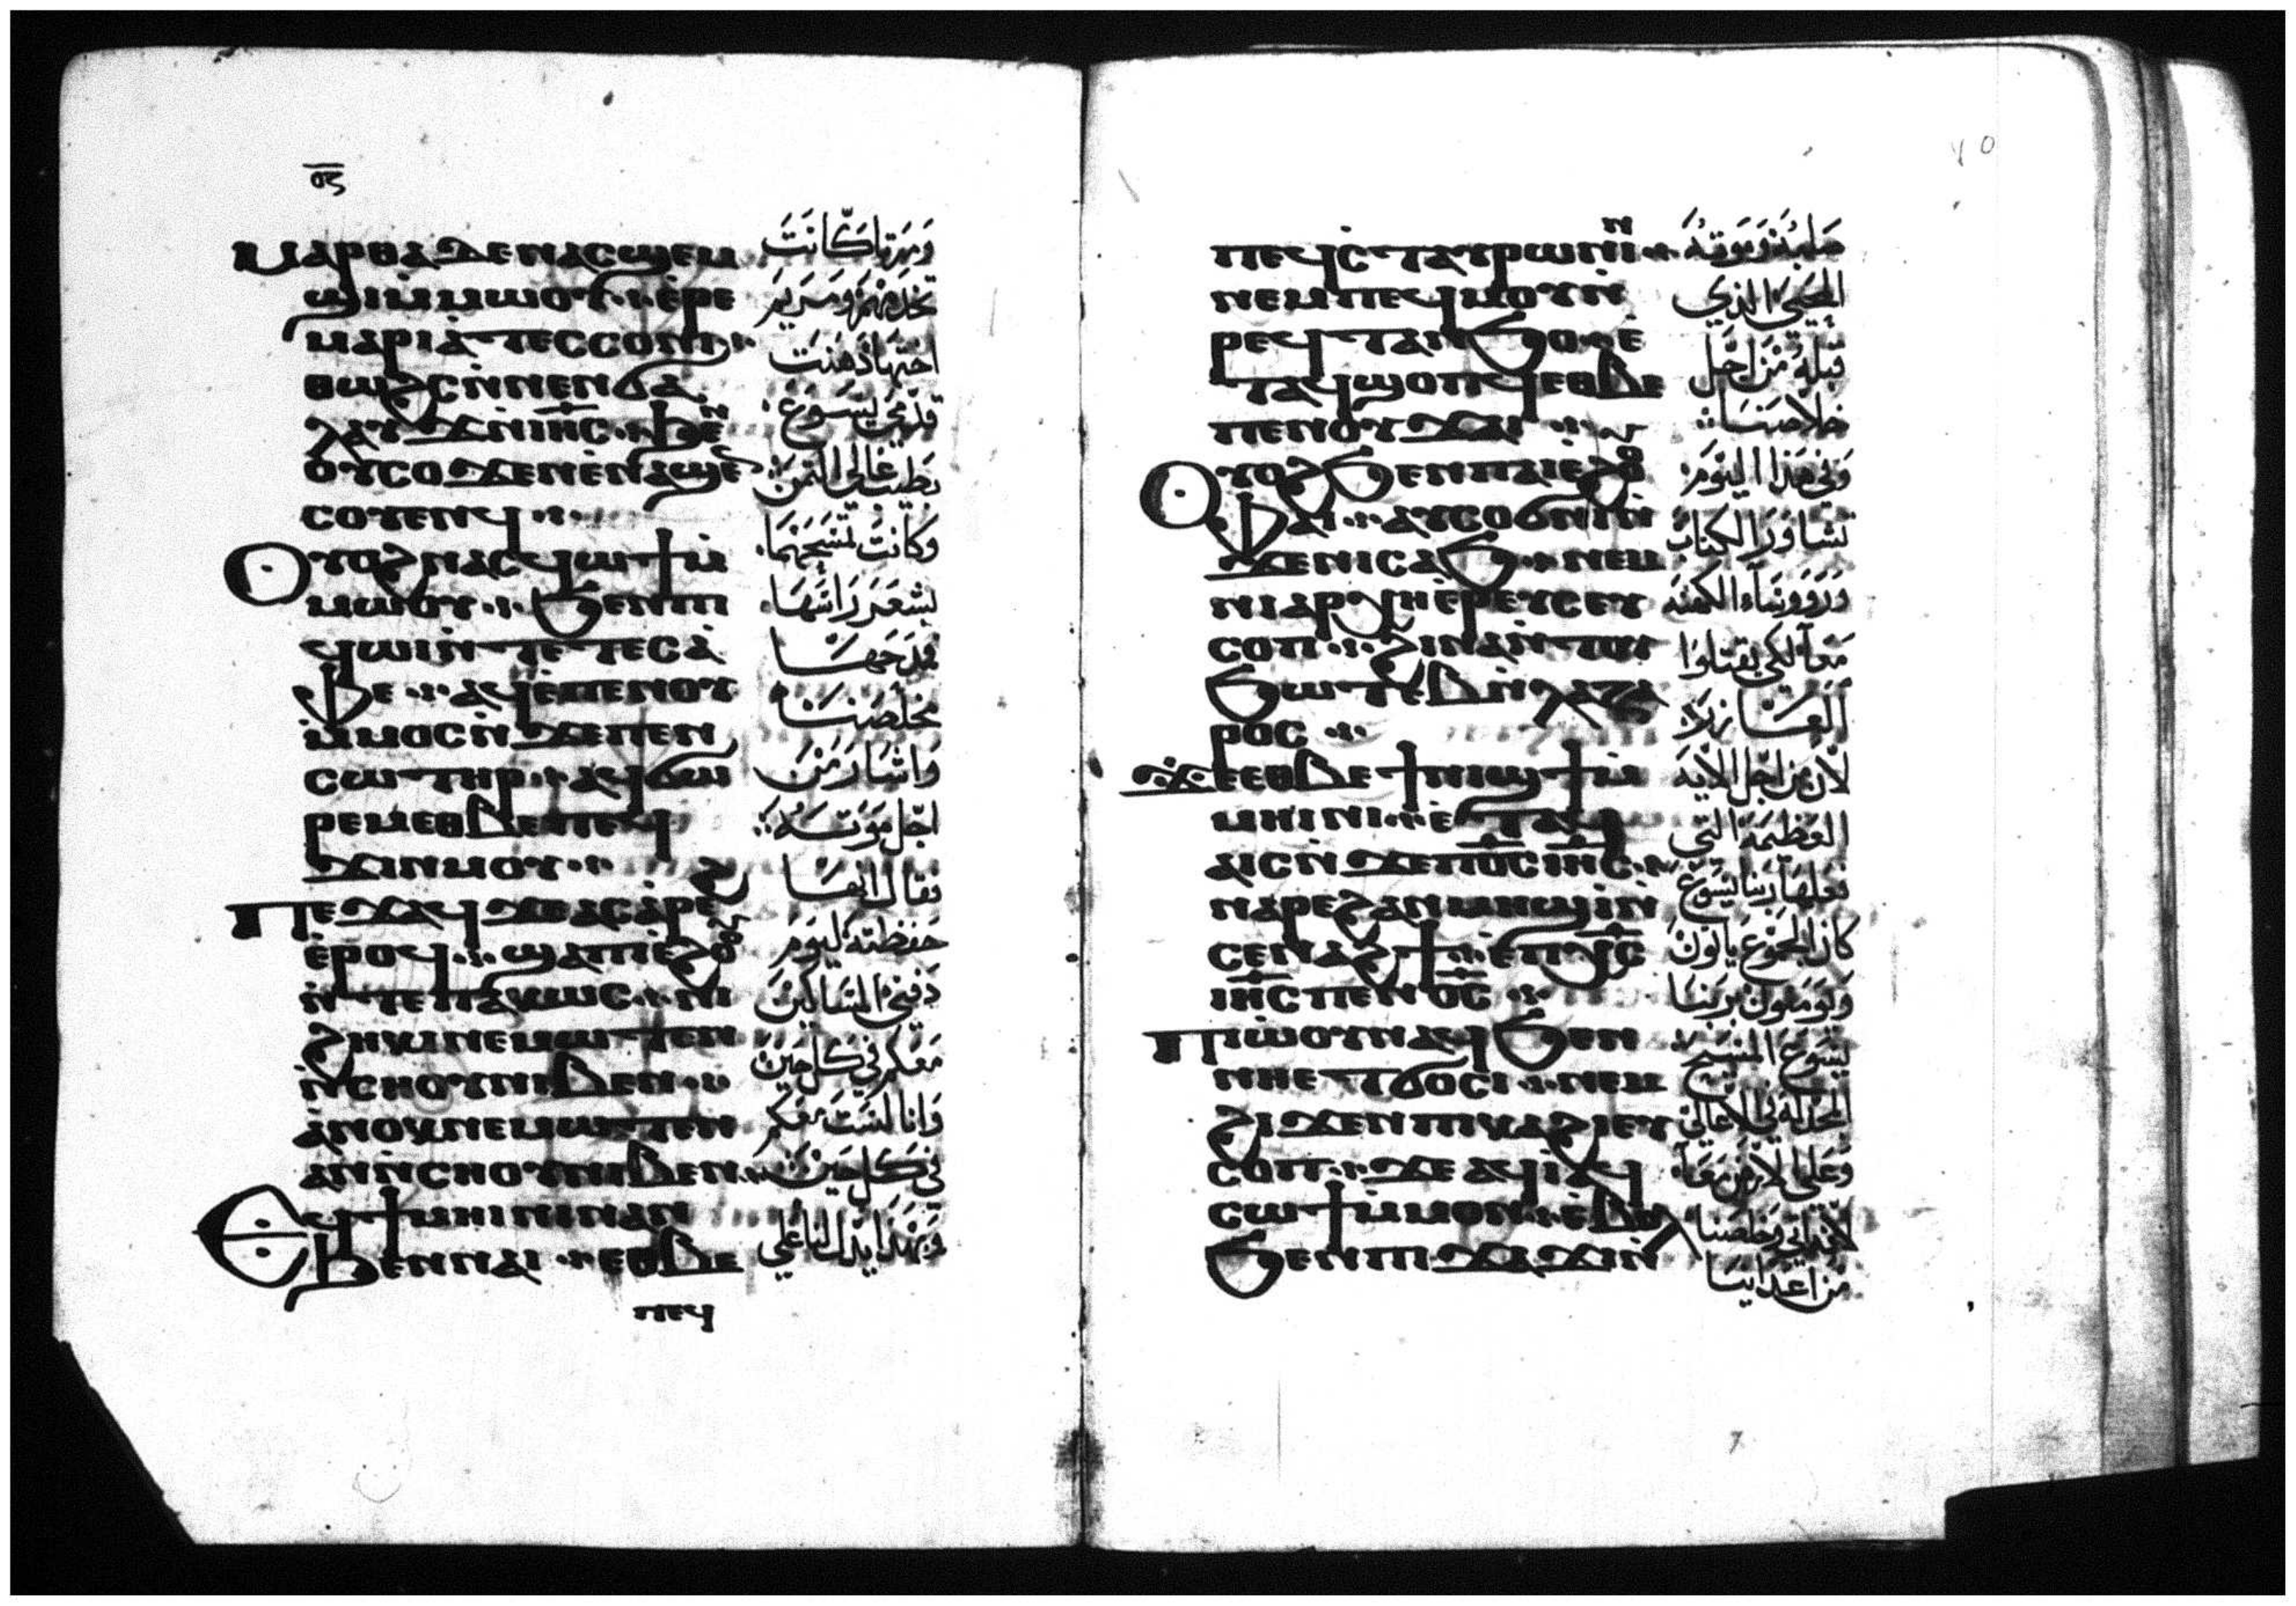 ⲟⲋ
ⲙⲁⲣⲑⲁ ⲇⲉ ⲛⲁⲥϣⲉⲙ
ϣⲓ ⲙ̀ⲙⲱⲟⲩ ⲉ̀ⲣⲉ
ⲙⲁⲣⲓⲁ̀ ⲧⲉⲥⲥⲟⲛⲓ
ⲑⲱϩⲥ ⲛ̀ⲛⲉⲛϭⲁ
ⲗⲁⲩϫ ⲛ̀ⲓⲏⲥ ϧⲉⲛ
ⲟⲩⲥⲟϫⲉⲛ ⲉ̀ⲛⲁϣⲉ
ⲥⲟⲩⲉⲛϥ
ⲟⲩⲟϩ ⲛⲁⲥϥⲱϯ ⲙ̀
ⲙⲱⲟⲩ ϧⲉⲛ ⲡⲓ
ϥⲱⲓ ⲛ̀ⲧⲉ ⲧⲉⲥⲁ̀
ⲫⲉ ⲁϥⲉ̀ⲡⲉⲛⲟⲩ
ⲙ̀ⲙⲟⲥ ⲛ̀ϫⲉ ⲡⲉⲛ
ⲥⲱⲧⲏⲣ ⲁϥϭⲱ
ⲣⲉⲙ ⲉⲑⲃⲉ ⲡⲉϥ
ϫⲓⲛⲙⲟⲩ
ⲡⲉϫⲁϥ ϫⲉ ⲁⲥⲁ̀ⲣⲉϩ
ⲉ̀ⲣⲟϥ ϣⲁ ⲡⲓⲉ̀ϩⲟⲟⲩ
ⲛ̀ⲧⲉ ⲡⲁⲕⲱⲥ ⲛⲓ
ϩⲏⲕⲓ ⲛⲉⲙⲱⲧⲉⲛ
ⲛ̀ⲥⲏⲟⲩ ⲛⲓⲃⲉⲛ
ⲁ̀ⲛⲟⲕ ⲛⲉⲙⲱⲧⲉⲛ
ⲁⲛ ⲛ̀ⲥⲏⲟⲩ ⲛⲓⲃⲉⲛ
ⲉϥϯⲙⲏⲓⲛⲓ ⲛⲁⲛ
ϧⲉⲛ ⲛⲁⲓ ⲉⲑⲃⲉ
ⲡⲉϥ
وَمَرتا كَانَت
تخدمهم ومريم
اختها دَهَنَت
قدمي يَسوع
بطيب غالي الثمن
وكانت تمسحهما
بشعر رأسها
فمدحها
مخلصنا
واشار من
اجل موته
فقال انها
حفظته ليوم
دفني المساكين
معكم في كل حين
وانا لست معكم
في كل حين
وبهذا يدل لنا على
ⲡⲉϥⲥ̀ⲧⲁⲩⲣⲱⲛⲛ̀
ⲛⲉⲙ ⲡⲉϥⲙⲟⲩ ⲛ̀
ⲣⲉϥⲧⲁⲛϧⲟ ⲉ̀
ⲧⲁϥϣⲟⲡϥ ⲉⲑⲃⲉ
ⲡⲉⲛⲟⲩϫⲁⲓ
ⲟⲩⲟϩ ϧⲉⲛ ⲡⲁⲓⲉ̀ϩⲟⲟⲩ
ⲫⲁⲓ ⲁⲩⲥⲟϭⲛⲓ ⲛ̀
ϫⲉ ⲛⲓⲥⲁϧ ⲛⲉⲙ
ⲛⲓⲁⲣⲭⲏⲉ̀ⲣⲉⲩⲥ ⲉⲩ
ⲥⲟⲡ ϩⲓⲛⲁ ⲛ̀ⲧⲟⲩ
ϧⲱⲧⲉⲃ ⲛ̀ⲗⲁⲍⲁ
ⲣⲟⲥ
ϫⲉ ⲉⲑⲃⲉ ϯⲛⲓϣϯ ⲙ̀
ⲙⲏⲓⲛⲓ ⲉ̀ⲧⲁϥ
ⲁⲓⲥ ⲛ̀ϫⲉ ⲡⲟ̅ⲥ̅ ⲓⲏ̅ⲥ̅
ⲛⲁⲣⲉ ϩⲁⲛⲙⲏϣ ⲓ̀ⲛ
ⲥⲉⲛⲁϩϯ ⲉ̀ⲡⲭ̅ⲥ̅
ⲓⲏ̅ⲥ̅ ⲡⲉⲛⲟ̅ⲥ̅
ⲡⲓⲱ̀ⲟⲩ ⲛⲁϥ ϧⲉⲛ
ⲛⲏⲉⲧϭⲟⲥⲓ ⲛⲉⲙ
ϩⲓϫⲉⲛ ⲡⲓⲕⲁϩⲓ ⲉⲩ
ⲥⲟⲡ ϫⲉ ⲁϥⲓ̀ ⲁϥ
ⲥⲱϯ ⲙ̀ⲙⲟⲛ ⲉ̀ⲃⲟⲗ
ϧⲉⲛ ⲡⲓϫⲁϫⲓ ⲛ̀
صلبه وموته
المحيي الذي
قبله من اجل
خلاصنا
وفي هذا اليوم
تشاور الكتاب
ورووساء الكهنه
معا لكي يقتلوا
العازر
لان من اجل الايه
العظيمه التي
فعلها ربنا يسوع
كان الجموع ياتون
ويومنون بربنا
يسوع المسيح
المجد له في الاعالي
وعلى الارض معا
لانه اتى وخلصنا
من اعداينا